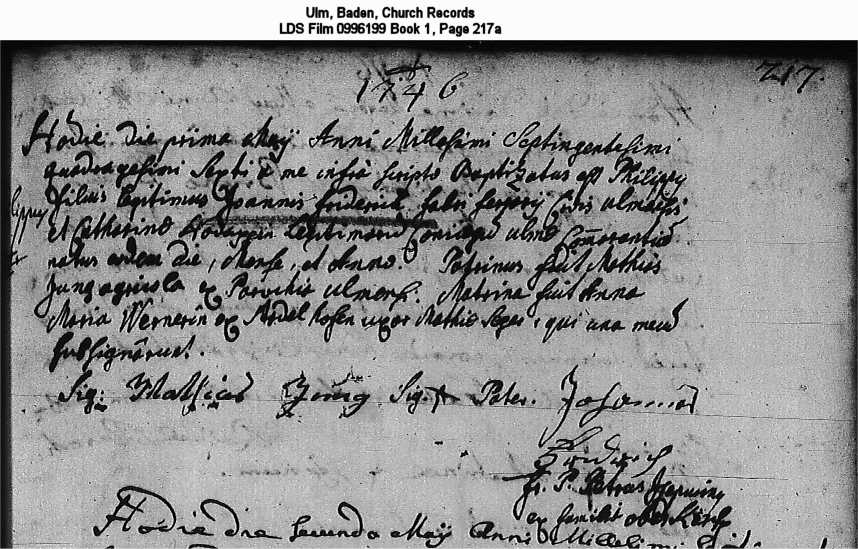 Ulm, Baden, Church Records
LDS Film 0996199 Book 1, Page 217a
1746
217.
Hodie die prima Maÿ Anni Millesimi Septingentesimi
quadragesimi Sexti à me infra scripto Baptizatus est Philippus
filius legitimus Joannis friderich fabri ferrarij Civis ulmensis
et Catharinae legitimorum Coniugum ulmae Commorantium
natus eadem die, Mense, et Anno. Patrinus fuit Mathias
Jung agricola ex Parochia ulmensi. Matrina fuit Anna
Maria Wernerin ex uxor Mathiae qui una mecum
subsignârunt.
Sig: Mathias Jung Sig: + Pater. Johannes
Fridrich
fr. P. Petrus
ex familia
Hodie die secunda Maÿ Anni Millesimi